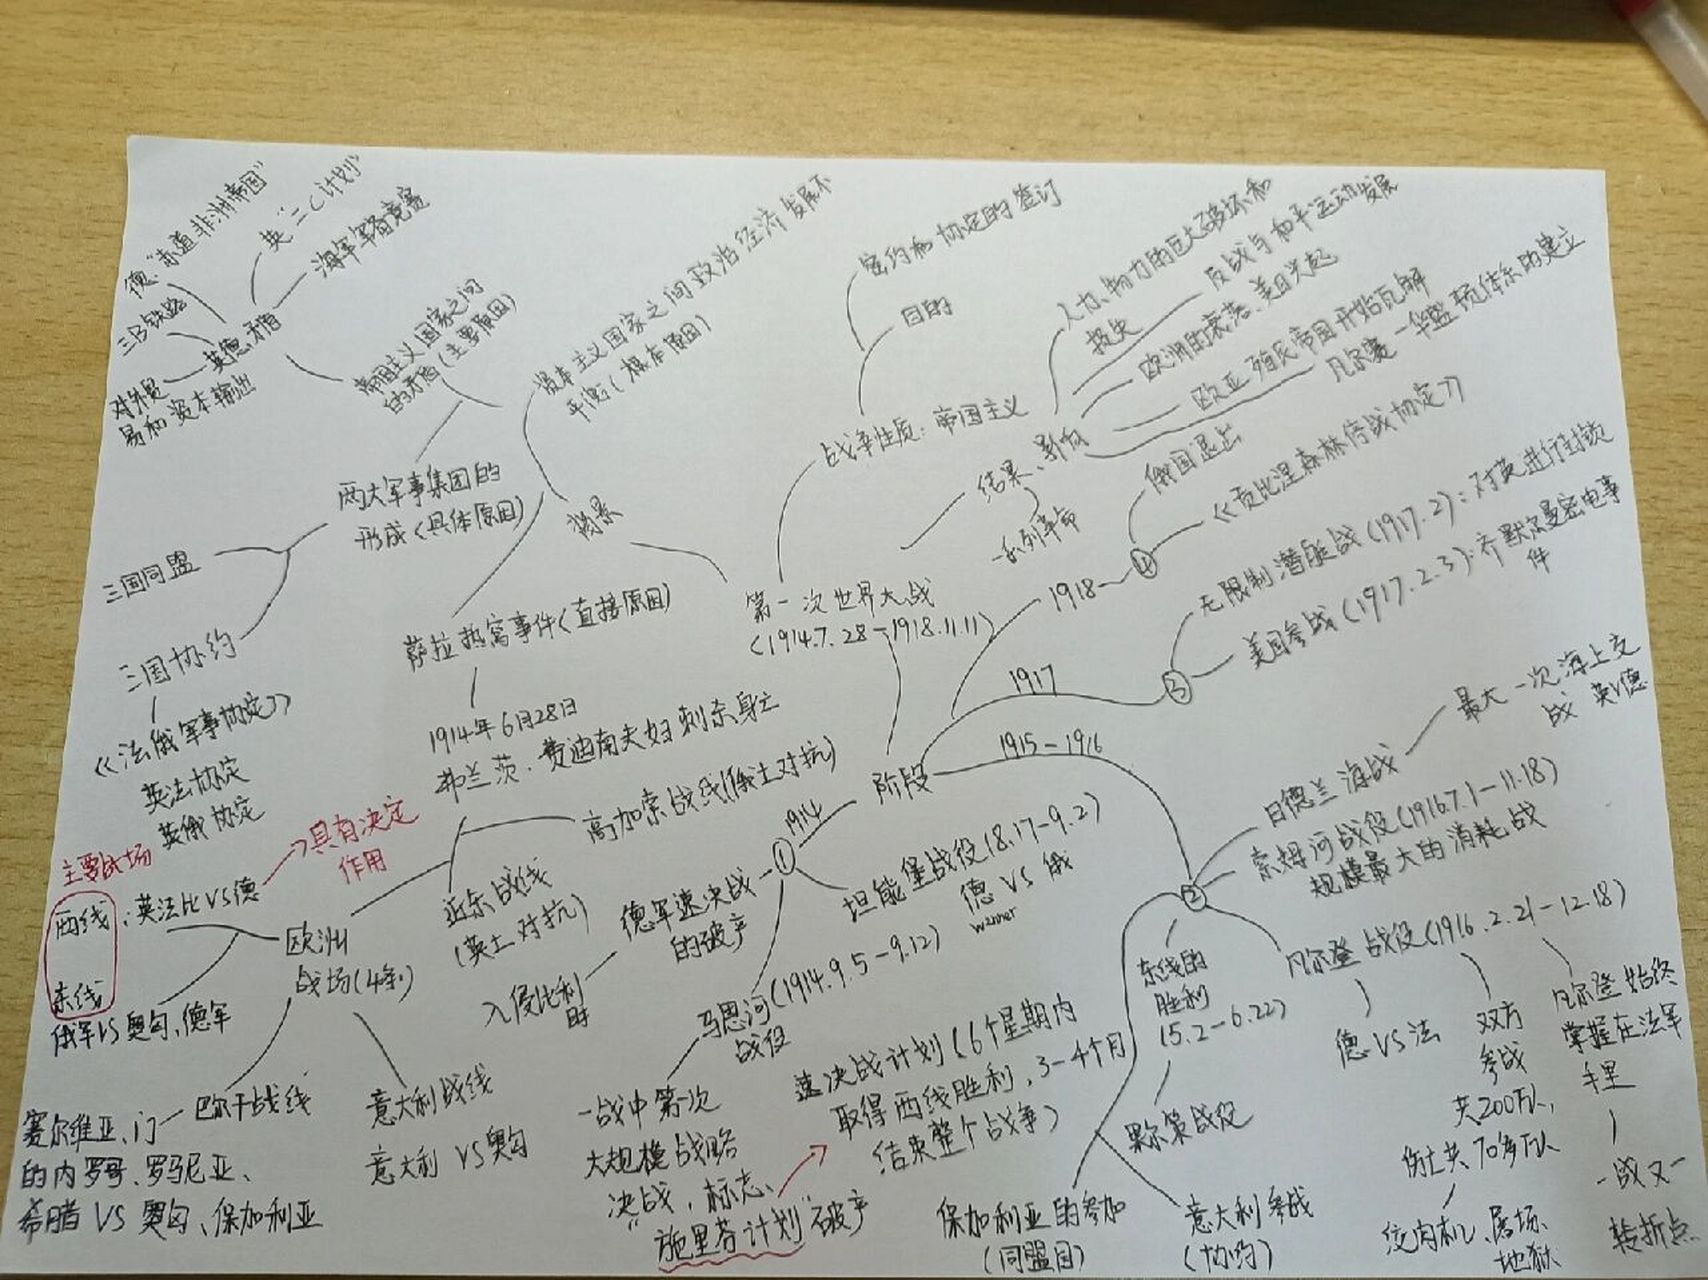 德"赤道非洲帝国"
英"二C计划"
海军军备竞赛
三B铁路
英德矛盾
对外贸
易和资本输出
帝国主义国家之间
的矛盾(主要原因)
资本主义国家之间政治经济发展不
平衡(根本原因)
两大军事集团的
形成(具体原因)
背景
三国同盟
三国协约
《法俄军事协定》
英法协定
英俄协定
萨拉热窝事件(直接原因)
1914年6月28日
弗兰茨·费迪南夫妇刺杀身亡
第一次世界大战
(1914.7.28-1918.11.11)
战争性质:帝国主义
目的
密约和协定的签订
结果、影响
一系列革命
人力、物力的巨大破坏和
损失
反战与和平运动发展
欧洲的衰落、美日兴起
欧亚殖民帝国开始瓦解
凡尔赛-华盛顿体系的建立
阶段
1918
④
俄国退出
《贡比涅森林停战协定》
1917
③
无限制潜艇战(1917.2):对英进行封锁
美国参战(1917.2.3):齐默尔曼密电事
件
1915-1916
②
日德兰海战
最大一次海上交
战 英V德
索姆河战役(1916.7.1-11.18)
规模最大的消耗战
凡尔登战役(1916.2.21-12.18)
德VS法
双方
参战
共200万人,
伤亡共70多万人
绞肉机、屠场、
地狱
凡尔登始终
掌握在法军
手里
一战又一
转折点
东线的
胜利
(5.2-6.22)
果尔策战役
保加利亚的参加
(同盟国)
意大利参战
(协约)
1914
①
坦能堡战役(8.17-9.2)
德 VS 俄
winner
德军速决战
的破产
入侵比利
时
马恩河(1914.9.5-9.12)
战役
一战中第一次
大规模战略
决战,标志、
"施里芬计划"破产
速决战计划(6个星期内
取得西线胜利,3-4个月
结束整个战争)
高加索战线(俄土对抗)
近东战线
(英土对抗)
欧洲
战场(4条)
主要战场
西线:英法比VS德
具有决定
作用
东线
俄军VS奥匈、德军
巴尔干战线
赛尔维亚、门
的内罗哥、罗马尼亚、
希腊 VS 奥匈、保加利亚
意大利战线
意大利 VS奥匈